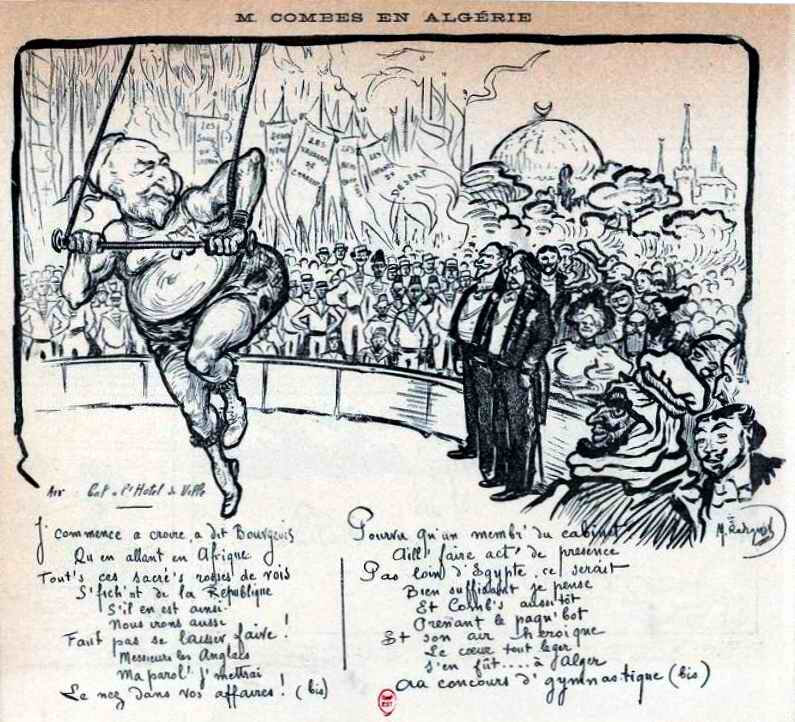 M. COMBES EN ALGÉRIE
LES
LES
LES
DESERT
Air: Cot a l'Hotel de Ville
J' commence a croire, a dit Bourgeois
Qu en allant en Afrique
Tout's ces sacré's rosses de rois
S'fich'nt de la Republique
S'il en est ainsi
Nous irons aussi
Faut pas se laisser faire!
Messieurs les Anglais
Ma parol' j'mettrai
Le nez dans vos affaires! (bis)
Pourvu qu'un membr' du cabinet
Aill' faire act' de presence
Pas loin d'Egypte, ce serait
Bien suffisant je pense
Et Comb's aussitôt
Prenant le paqu'bot
Et son air heroique
Le cœur tout leger
S'en fût.... à Alger
Au concours d' gymnastique (bis)